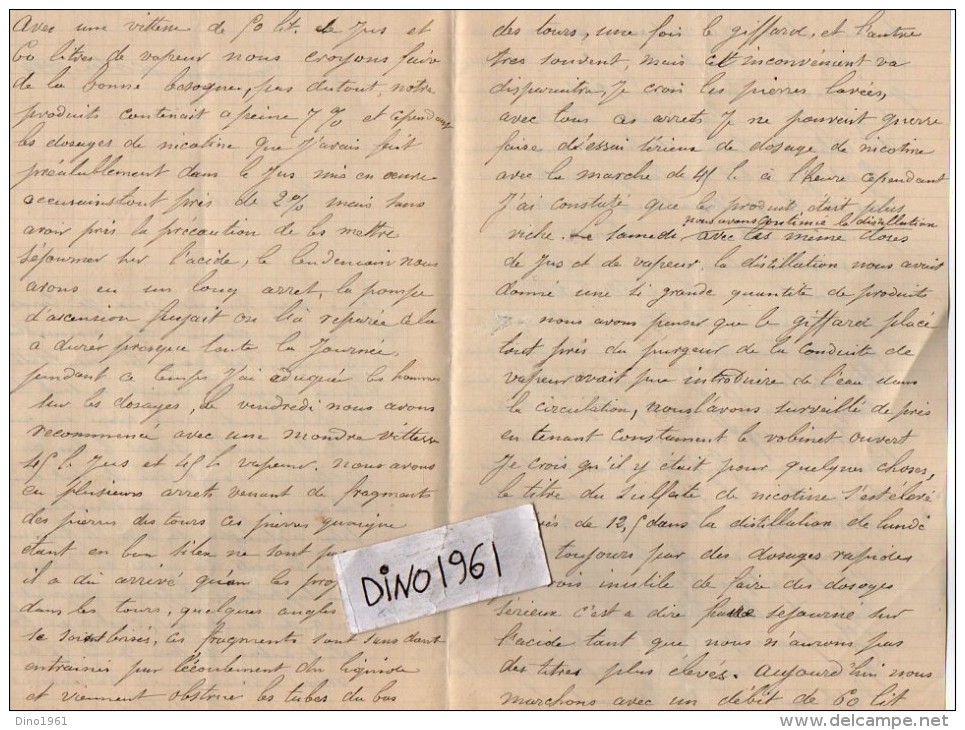 Avec une vittesse de 60 lit. de Jus et
60 litres de vapeur nous croyons faire
de la bonne besogne, pas dutout, notre
produits contenait a peine 7 % et cependant
les dosages de nicotine que J'avais fait
préalablement dans le Jus mis en œuvre
accusaient tout près de 2 % mais sans
avoir pris la précaution de les mettre
séjourner sur l'acide, le lendemain nous
avons eu un long arret, la pompe
d'ascension fuyait on l'a reparée cela
a durér presque toute la Journée
pendant ce temps J'ai éduquér les hommes
sur les dosages, le vendredi nous avons
recommencé avec une moindre vittesse
45 l. Jus et 45 l. vapeur. nous avons
eu plusieurs arrets venant de fragmants
des pierres des tours ces pierres quoique
étant en bon silex ne sont pas
il a du arrivé quan les
dans les tours, quelques angles
se soient brisés, ces fragments sont sans dout
entrainés par l'écoulement du liquide
et viennent obstrué les tubes du bas
des tours, une fois le giffard, et l'autre
tres souvent, mais cet inconvénient va
disparaitre, Je crois les pierres lavées,
avec tous ces arrets Je ne pouvait guerre
faire d'éssai sérieux de dosage de nicotine
avec la marche de 45 l. à l'heure cependant
J'ai constaté que le produit était plus
nous avons continué la distillation
riche. Le samedi, avec les même doses
de Jus et de vapeur. la distillation nous avait
donné une si grande quantité de produits
nous avons penser que le giffard placé
tout près du purgeur de la conduite de
vapeur avait pu introduire de l'eau dans
la circulation, nous l'avons surveillé de près
en tenant constament le robinet ouvert
Je crois qu'il y était pour quelques choses,
le titre du sulfate de nicotine s'est élevé
près de 12,5 dans la distillation de lundi
toujours par des dosages rapides
crois inutile de faire des dosages
sérieux c'est a dire séjourné sur
l'acide tant que nous n'aurons pas
des titres plus élevés. aujourd'hui nous
marchons avec un débit de 60 lit
DINO1961
Dino1961